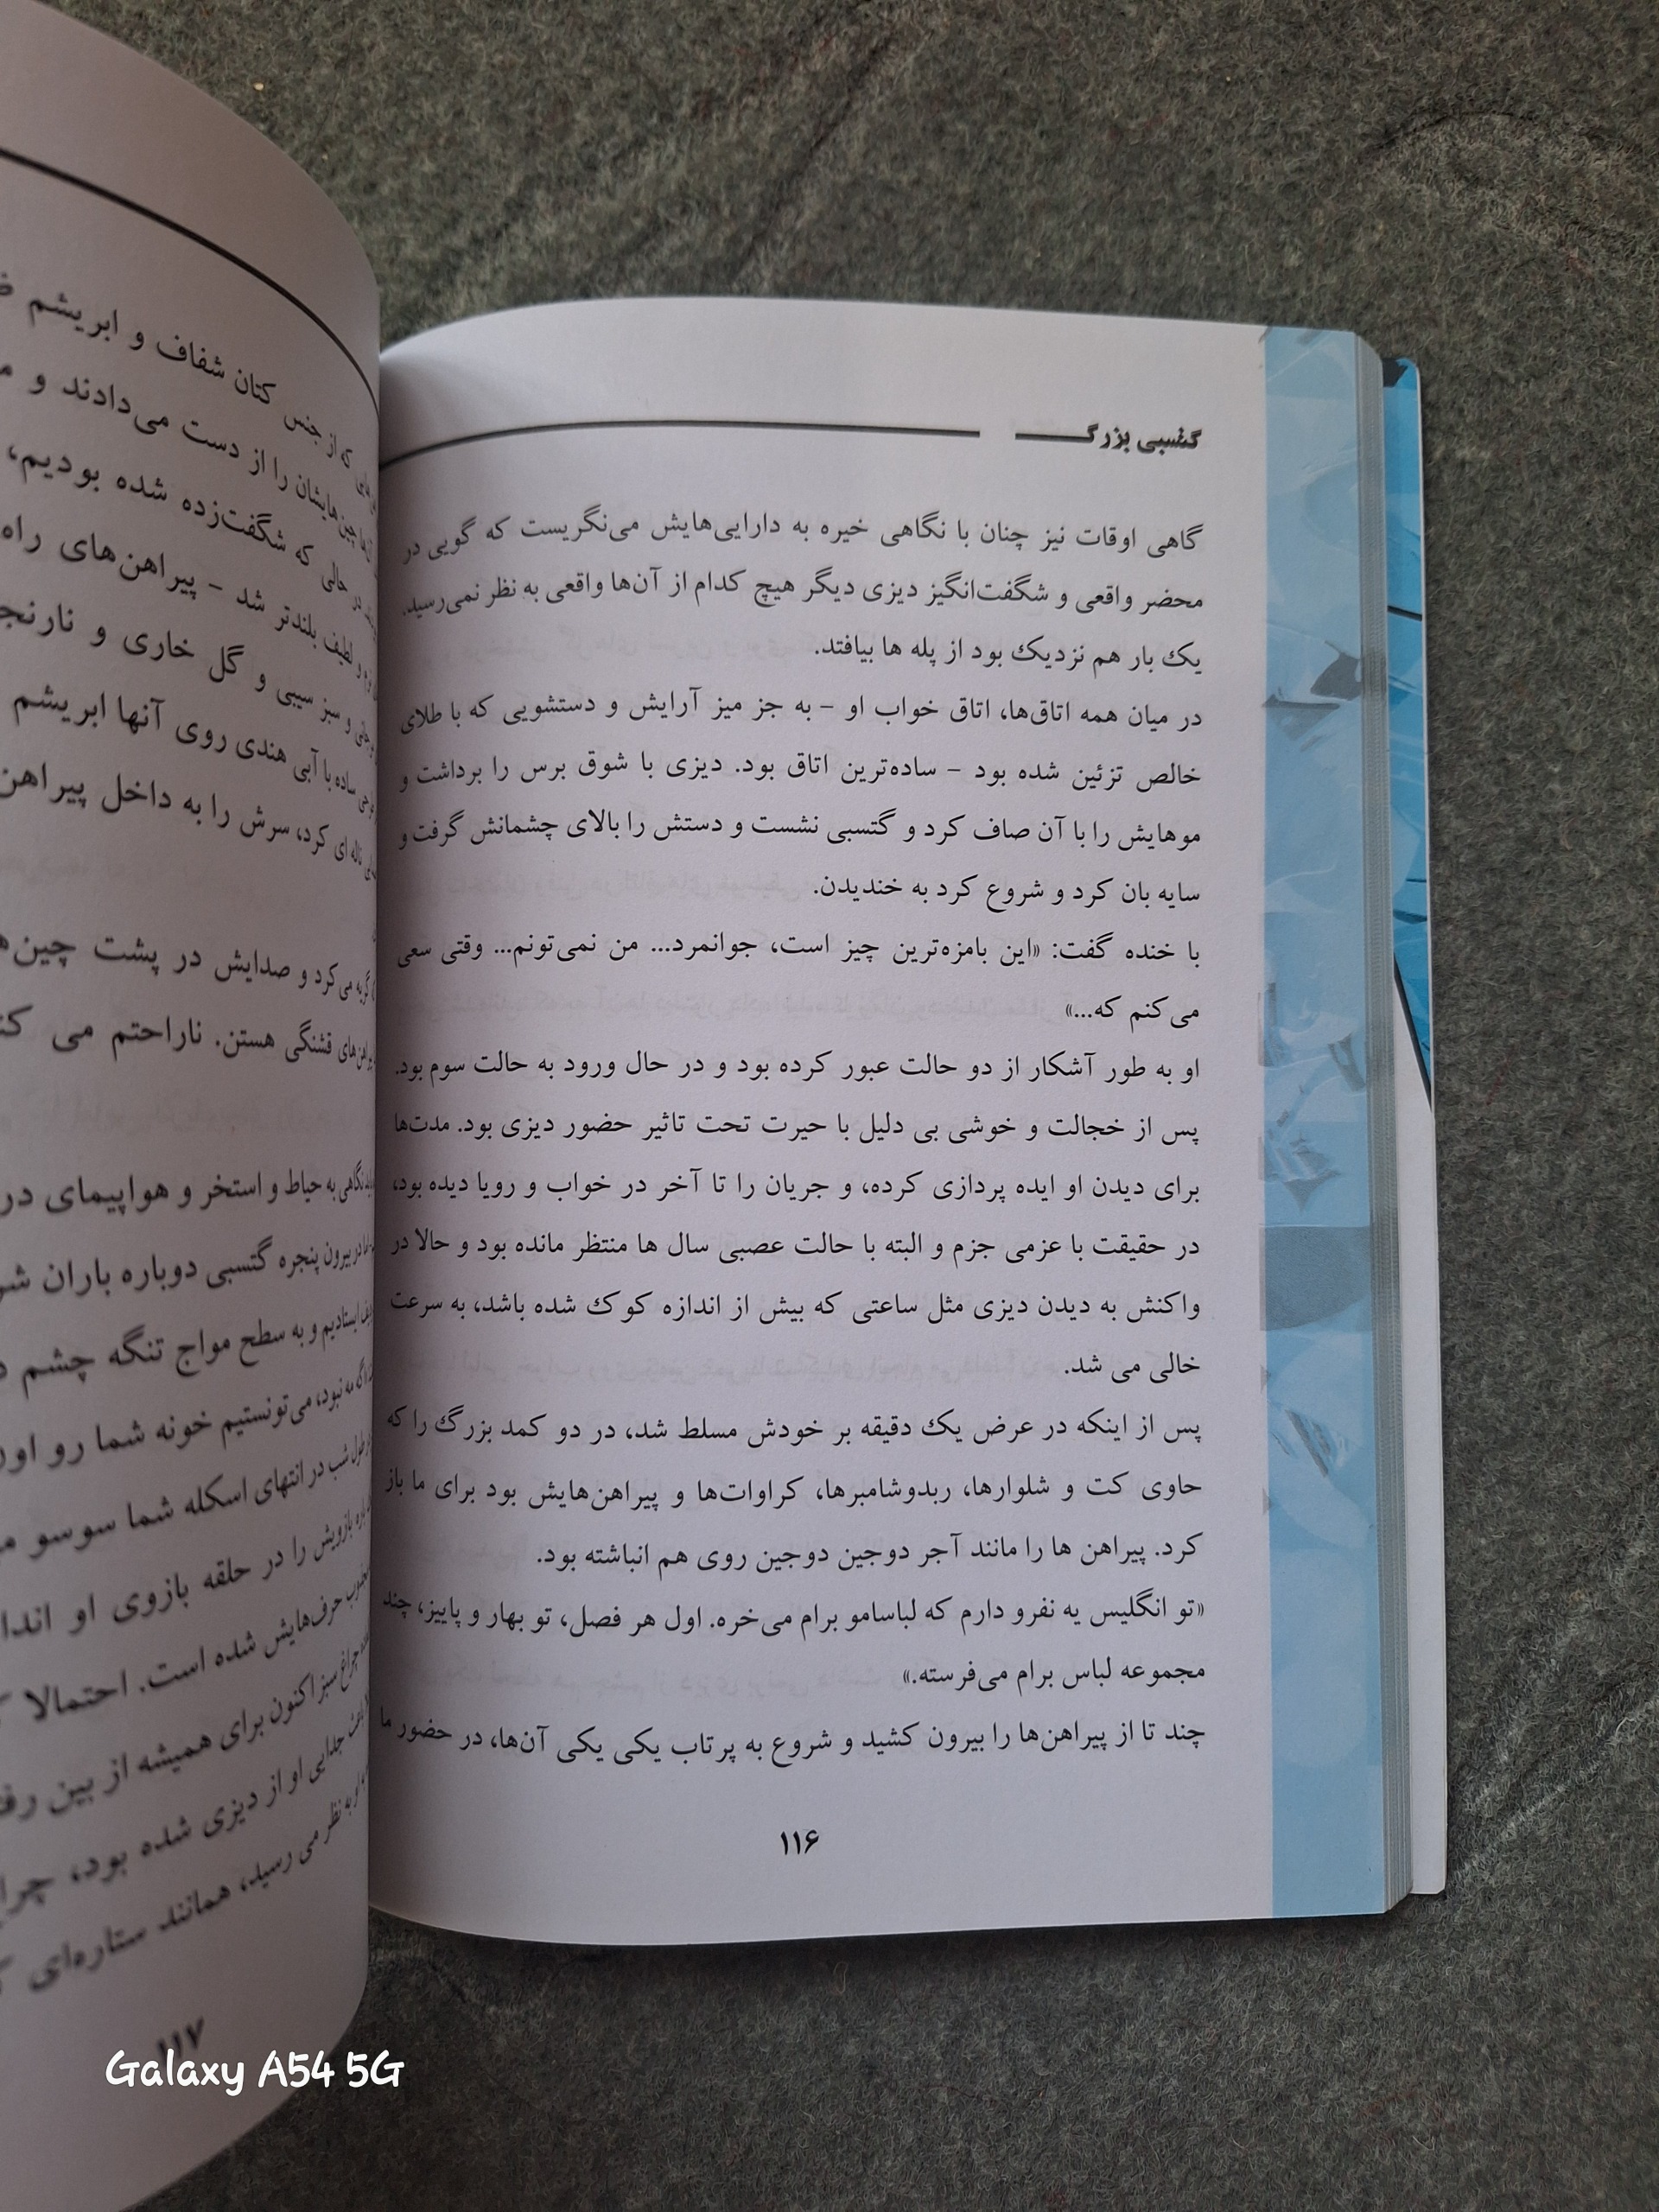 گتسبی بزرگ
گاهی اوقات نیز چنان با نگاهی خیره به دارایی‌هایش می‌نگریست که گویی در
محضر واقعی و شگفت‌انگیز دیزی دیگر هیچ کدام از آن‌ها واقعی به نظر نمی‌رسید.
یک بار هم نزدیک بود از پله ها بیافتد.
در میان همه اتاق‌ها، اتاق خواب او – به جز میز آرایش و دستشویی که با طلای
خالص تزئین شده بود – ساده‌ترین اتاق بود. دیزی با شوق برس را برداشت و
موهایش را با آن صاف کرد و گتسبی نشست و دستش را بالای چشمانش گرفت و
سایه بان کرد و شروع کرد به خندیدن.
با خنده گفت: «این بامزه‌ترین چیز است، جوانمرد... من نمی‌تونم... وقتی سعی
می‌کنم که...»
او به طور آشکار از دو حالت عبور کرده بود و در حال ورود به حالت سوم بود.
پس از خجالت و خوشی بی دلیل با حیرت تحت تاثیر حضور دیزی بود. مدت‌ها
برای دیدن او ایده پردازی کرده، و جریان را تا آخر در خواب و رویا دیده بود،
در حقیقت با عزمی جزم و البته با حالت عصبی سال ها منتظر مانده بود و حالا در
واکنش به دیدن دیزی مثل ساعتی که بیش از اندازه کوک شده باشد، به سرعت
خالی می شد.
پس از اینکه در عرض یک دقیقه بر خودش مسلط شد، در دو کمد بزرگ را که
حاوی کت و شلوارها، ربدوشامبرها، کراوات‌ها و پیراهن‌هایش بود برای ما باز
کرد. پیراهن ها را مانند آجر دوجین دوجین روی هم انباشته بود.
«تو انگلیس یه نفرو دارم که لباسامو برام می‌خره. اول هر فصل، تو بهار و پاییز، چند
مجموعه لباس برام می‌فرسته.»
چند تا از پیراهن‌ها را بیرون کشید و شروع به پرتاب یکی یکی آن‌ها، در حضور ما
۱۱۶
که از جنس کتان شفاف و ابریشم
چین‌هایشان را از دست می‌دادند و
در حالی که شگفت‌زده شده بودیم،
و لطیف بلندتر شد – پیراهن‌های راه
و سبز سیبی و گل خاری و نارنج
ساده با آبی هندی روی آنها ابریشم
ناله ای کرد، سرش را به داخل پیراهن
گریه می‌کرد و صدایش در پشت چین
قشنگی هستن. ناراحتم می
نگاهی به حیاط و استخر و هواپیمای در
در بیرون پنجره گتسبی دوباره باران
ایستادیم و به سطح مواج تنگه چشم
مه نبود، می‌تونستیم خونه شما رو اون
طول شب در انتهای اسکله شما سوسو
بازویش را در حلقه بازوی او
حرف‌هایش شده است. احتمالا
چراغ سبز اکنون برای همیشه از بین
جدایی او از دیزی شده بود،
به نظر می رسید، همانند ستاره‌ای
۱۱۷
Galaxy A54 5G